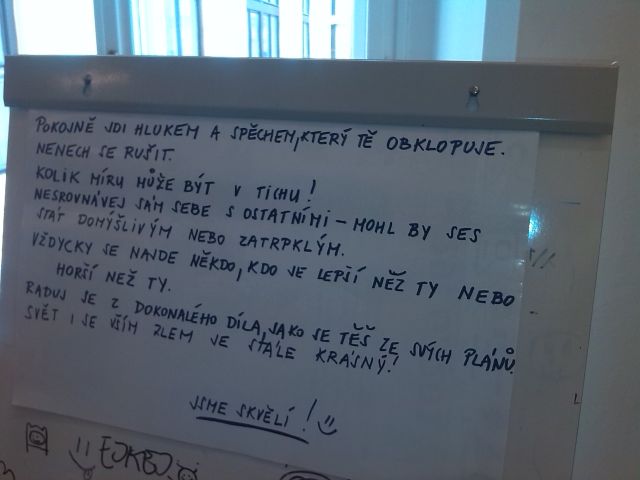 POKOJNĚ JDI HLUKEM A SPĚCHEM, KTERÝ TĚ OBKLOPUJE.
NENECH SE RUŠIT.
KOLIK MÍRU MŮŽE BÝT V TICHU!
NESROVNÁVEJ SÁM SEBE S OSTATNÍMI – MOHL BY SES
STÁT DOMÝŠLIVÝM NEBO ZATRPKLÝM.
VŽDYCKY SE NAJDE NĚKDO, KDO JE LEPŠÍ NEŽ TY NEBO
HORŠÍ NEŽ TY.
RADUJ SE Z DOKONALÉHO DÍLA, JAKO SE TĚŠ ZE SVÝCH PLÁNŮ.
SVĚT I SE VŠÍM ZLEM JE STÁLE KRÁSNÝ!
JSME SKVĚLÍ!